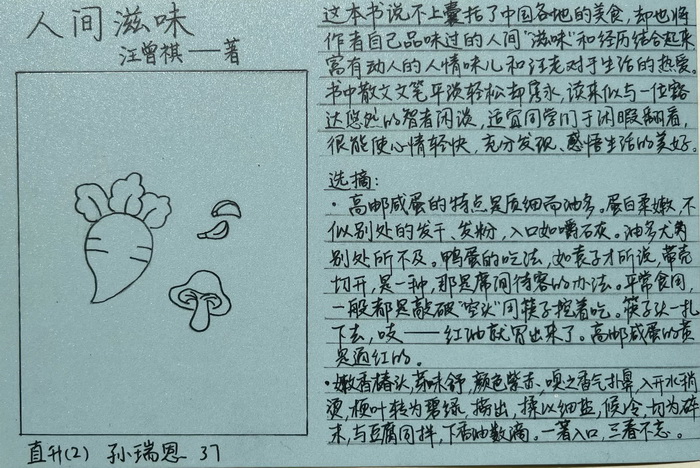 人间滋味
汪曾祺——著
直升(2) 孙瑞恩 37
这本书说不上囊括了中国各地的美食,却也将
作者自己品味过的人间“滋味”和经历结合起来
富有动人的人情味儿和汪老对于生活的热爱。
书中散文文笔平淡轻松却隽永,读来似与一位豁
达悠然的智者闲谈,适宜同学们于闲暇翻看,
很能使心情轻快,充分发现、感悟生活的美好。
选摘:
·高邮咸蛋的特点是质细而油多。蛋白柔嫩,不
似别处的发干、发粉,入口如嚼石灰。油多尤为
别处所不及。鸭蛋的吃法,如袁子才所说,带壳
切开,是一种,那是席间待客的办法。平常食用,
一般都是敲破“空头”用筷子挖着吃。筷子头一扎
下去,吱——红油就冒出来了。高邮咸蛋的黄
是通红的。
·嫩香椿头,芽叶未舒,颜色紫赤,嗅之香气扑鼻,入开水稍
烫,梗叶转为碧绿,捞出,揉以细盐,候冷,切为碎
末,与豆腐同拌,下香油数滴。一箸入口,三春不忘。